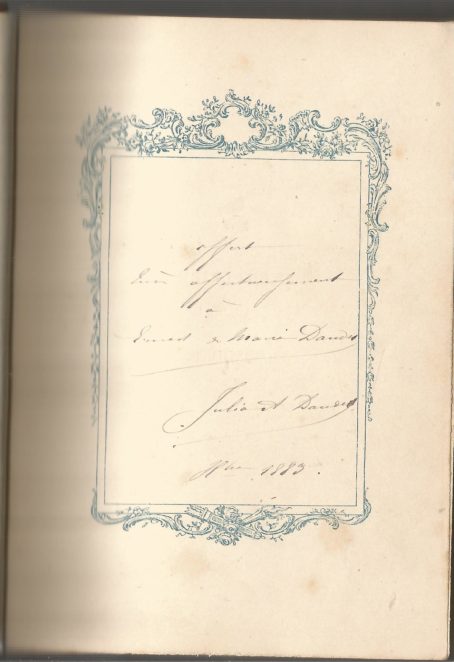 offert
très affectueusement
à
Ernest & Marie Daudet
Julia A Daudet
1883.